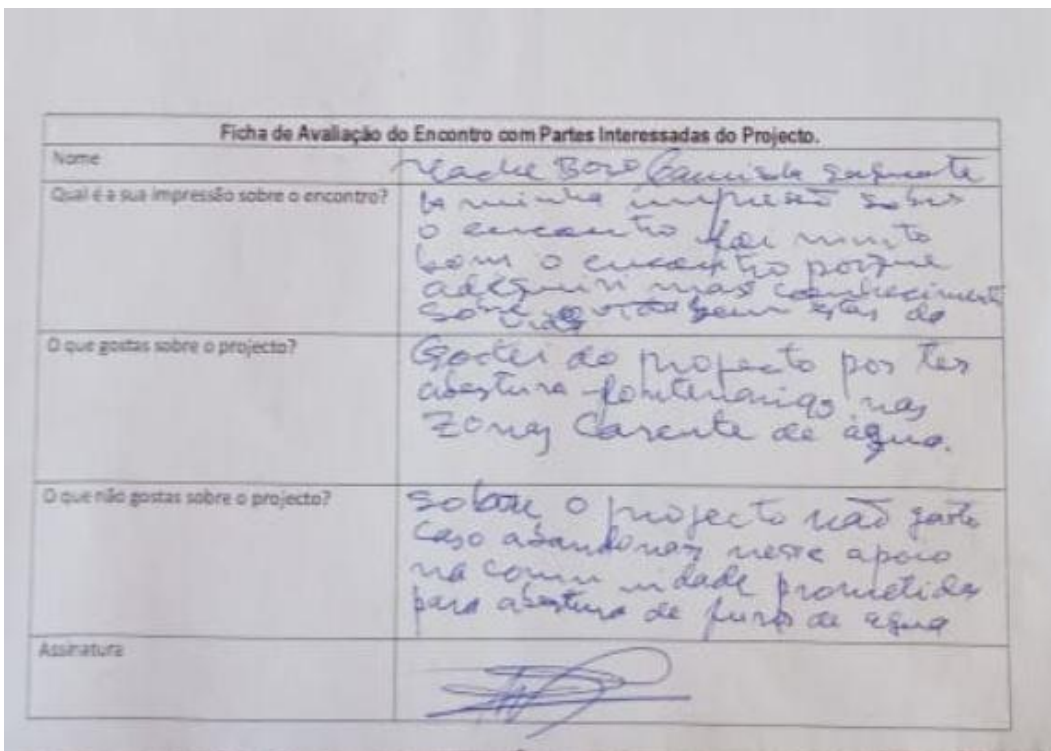 Ficha de Avaliação do Encontro com Partes Interessadas do Projecto.
Nome
Qual é a sua impressão sobre o encontro?
A minha impresão sobre
o encontro foi muito
bom o encontro porque
adequiri mas conheciment
bem estas de
O que gostas sobre o projecto?
Gostei do projecto por ter
abertura nas
zonas carente de água.
O que não gostas sobre o projecto?
Sobre o projecto não gosto
caso abandonaz neste apoio
na comunidade prometidas
para abertura de furos de agua
Assinatura